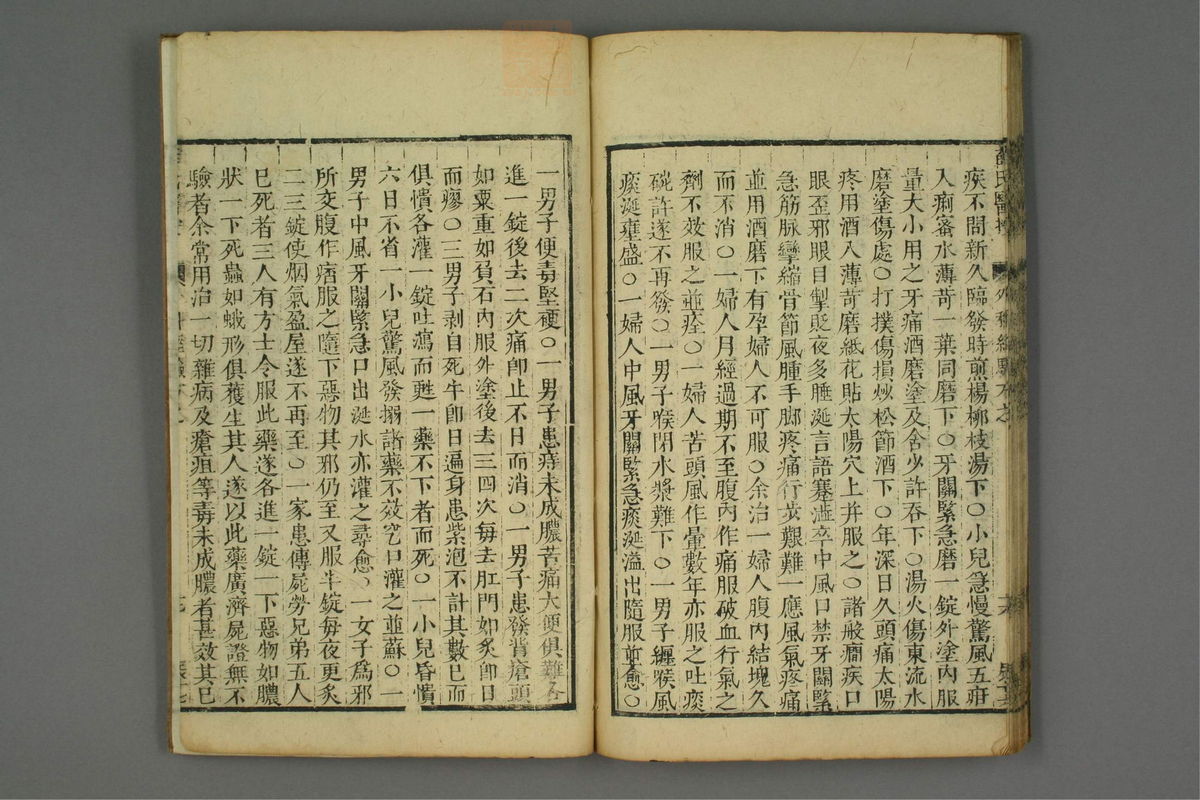 疾不問新久臨發時煎楊柳枝湯下○小兒急慢驚風五疳
入痢蜜水薄苛一葉同磨下○牙關緊急磨一錠外塗內服
量大小用之牙痛酒磨塗及含少許吞下○湯火傷東流水
磨塗傷處○打撲傷損炒松節酒下○年深日久頭痛太陽
疼用酒入薄苛磨紙花貼太陽穴上并服之○諸般癎疾口
眼歪邪眼目掣眨夜多睡涎言語蹇澁卒中風口禁牙關緊
急筋脉攣縮骨節風腫手脚疼痛行步艱難一應風氣疼痛
並用酒磨下有孕婦人不可服○余治一婦人腹內結塊久
而不消○一婦人月經過期不至腹內作痛服破血行氣之
劑不效服之並痊○一婦人苦頭風作暈數年亦服之吐痰
碗許遂不再發○一男子喉閉水漿難下○一男子纏喉風
痰涎壅盛○一婦人中風牙關緊急痰涎溢出隨服前愈○
一男子便毒堅硬○一男子患痔未成膿苦痛大便俱難各
進一錠後去二次痛卽止不日而消○一男子患發背瘡頭
如粟重如負石內服外塗後去三四次每去肛門如炙卽日
而瘳○三男子剥自死牛卽日遍身患紫泡不計其數已而
俱憒各灌一錠吐瀉而甦一藥不下者而死○一小兒昏憒
六日不省一小兒驚風發搐諸藥不效挖口灌之並蘇○一
男子中風牙關緊急口出涎水亦灌之尋愈○一女子爲邪
所交腹作痞服之隨下惡物其邪仍至又服半錠每夜更炙
二三錠使烟氣盈屋遂不再至○一家患傳屍勞兄弟五人
已死者三人有方士令服此藥遂各進一錠一下惡物如膿
狀一下死蟲如蛾形俱獲生其人遂以此藥廣濟屍證無不
驗者余常用治一切雜病及瘡疽等毒未成膿者甚效其已